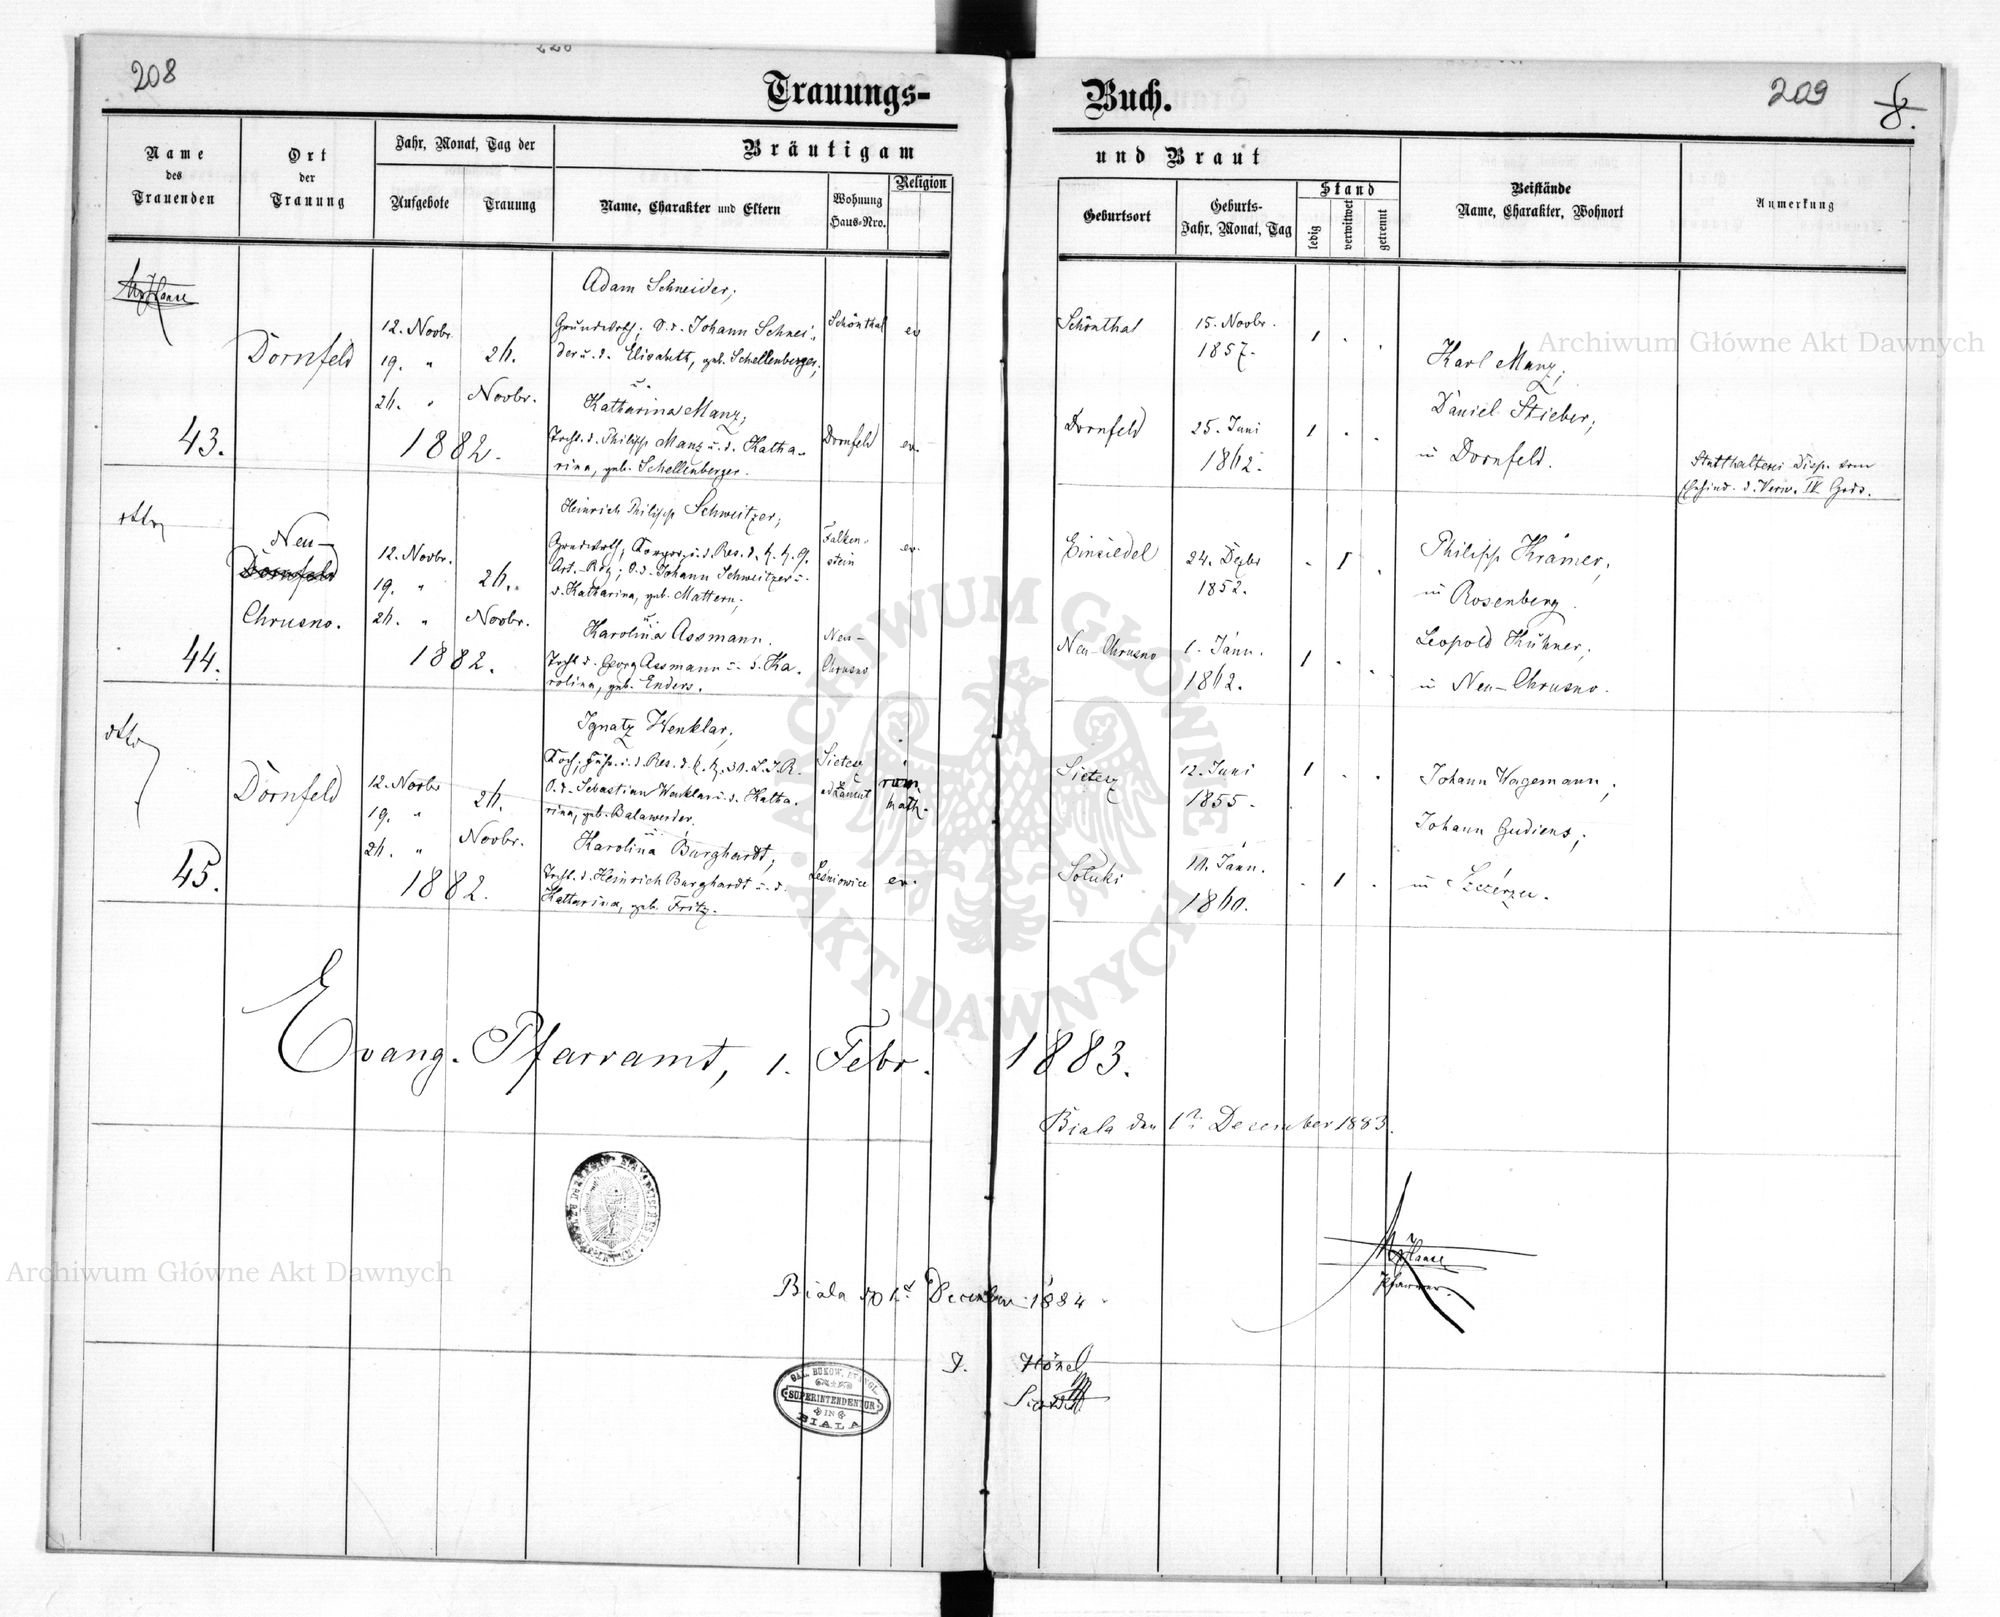 208
Trauungs-
Buch.
209
Name
des
Trauenden
Ort
der
Trauung
Jahr, Monat, Tag der
Aufgebote
Trauung
Bräutigam
Name, Charakter und Eltern
Wohnung
Haus-Nro.
Religion
und Braut
Geburtsort
Geburts-
Jahr, Monat, Tag
Stand
ledig
verwitwet
getrennt
Beistände
Name, Charakter, Wohnort
Anmerkung
43.
Dornfeld
12. Novbr.
19. "
26. "
26.
Novbr.
1882.
Adam Schneider,
Grundwrth; S. d. Johann Schnei-
der u. d. Elisabeth, geb. Schellenberger;
u.
Katharina Manz,
Tocht. d. Philipp Manz u. d. Katha-
rina, geb. Schellenberger.
Schönthal
ev.
Dornfeld
ev.
Schönthal
15. Novbr.
1857.
1 . .
Dornfeld
25. Juni
1862.
1 . .
Karl Manz,
Daniel Stieber,
in Dornfeld.
Statthalterei Disp. vom
Ehehind. d. Verw. IV Grds.
44.
Neu-
Dornfeld
Chrusno.
12. Novbr.
19. "
26. "
26.
Novbr.
1882.
Heinrich Philipp Schweitzer,
Art.-Reg; S. d. Johann Schweitzer u.
d. Katharina, geb. Mattern,
u.
Karolina Assmann.
Tocht. d. Georg Assmann u. d. Ka-
rolina, geb. Enders.
Falken-
stein
ev.
Neu-
Chrusno
Einsiedel
24. Dezbr
1852.
. 1 .
Neu-Chrusno
1. Jänn.
1862.
1 . .
Philipp Krämer,
in Rosenberg.
Leopold Kühner,
in Neu-Chrusno.
45.
Dornfeld
12. Novbr
19. "
26. "
26.
Novbr.
1882.
Ignatz Wenklar,
S. d. Sebastian Wenklar u. d. Katha-
rina, geb. Balawender.
u.
Karolina Burghardt,
Tocht. d. Heinrich Burghardt u. d.
Katharina, geb. Fritz.
röm.
kath.
Lesniowice
ev.
Sietesz
12. Juni
1855.
1 . .
Jänn.
1860.
. 1 .
Johann Wagemann,
Johann Gudiens,
in Szczerzec.
Evang. Pfarramt, 1. Febr. 1883.
Biala den 1n December 1883.
Pfarrer.
Biala December 1884
J. Hönel
GAL. BUKOW. EVANGL.
SUPERINTENDENTUR
IN
BIALA
ARCHIWUM GŁÓWNE
AKT DAWNYCH
Archiwum Główne Akt Dawnych
Archiwum Główne Akt Dawnych